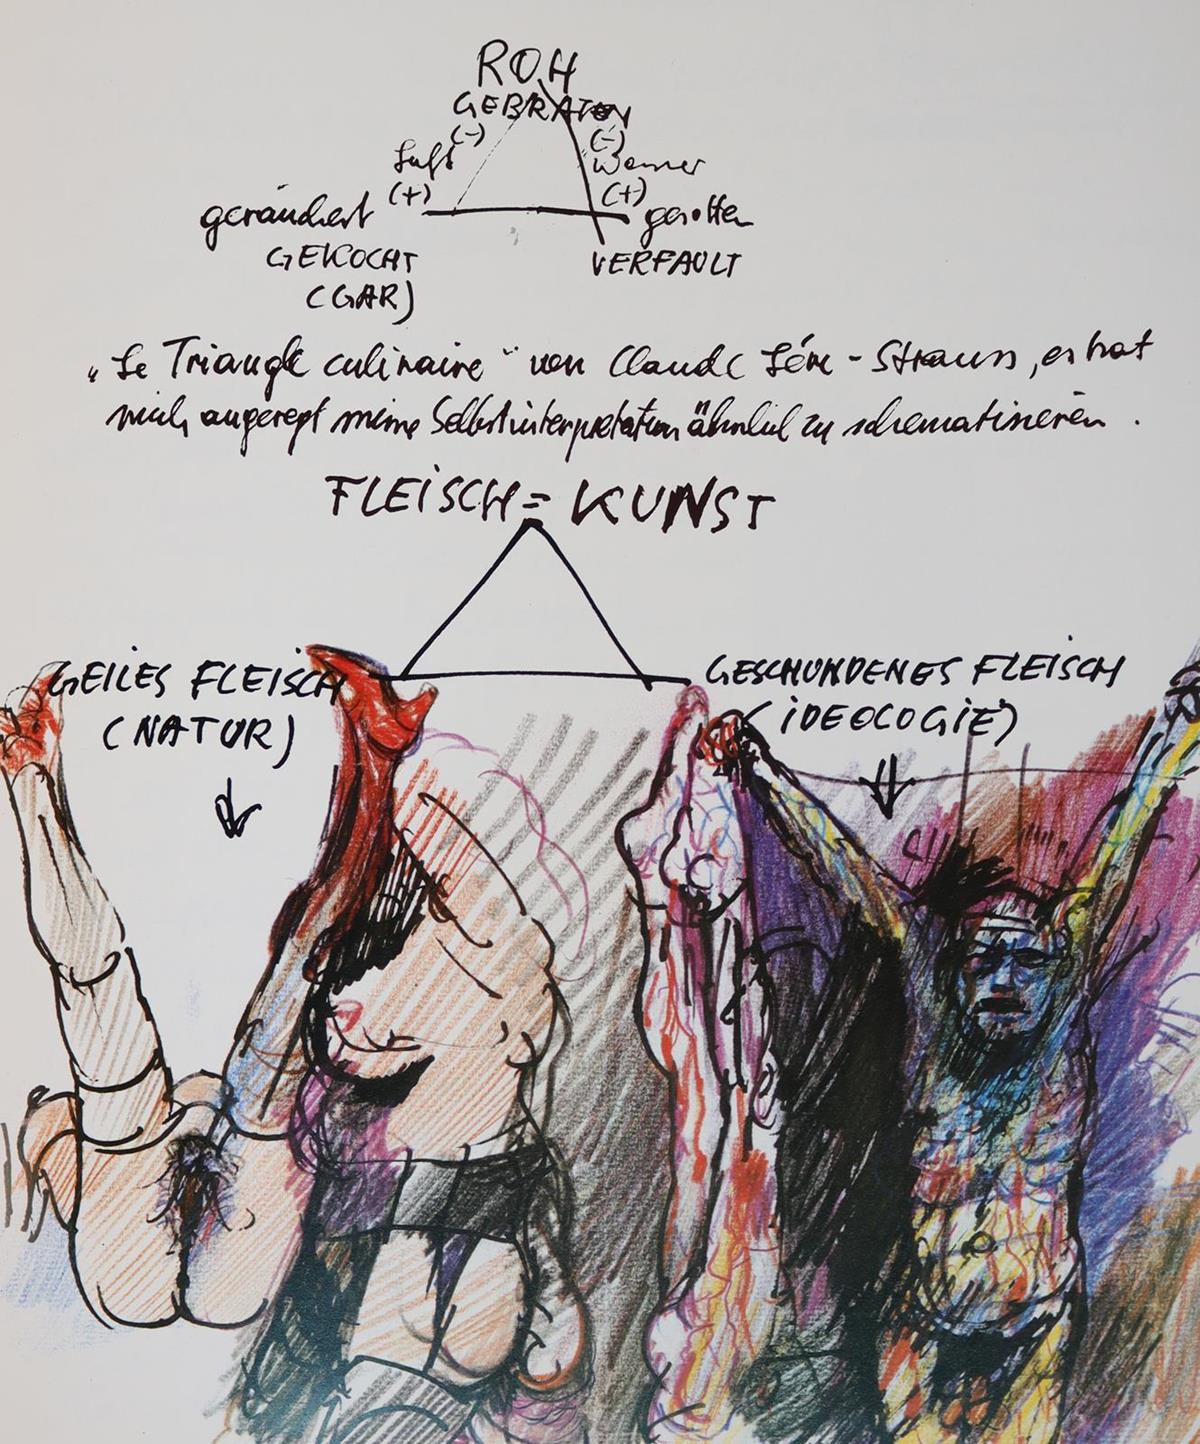 ROH
GEBRATEN
(-) (-)
Luft Wasser
(+) (+)
geräuchert gesotten
GEKOCHT VERFAULT
(GAR)
„Le Triangle culinaire" von Claude Lévi-Strauss, es hat
mich angeregt meine Selbstinterpretation ähnlich zu schematisieren.
FLEISCH = KUNST
GEILES FLEISCH GESCHUNDENES FLEISCH
(NATUR) (IDEOLOGIE)